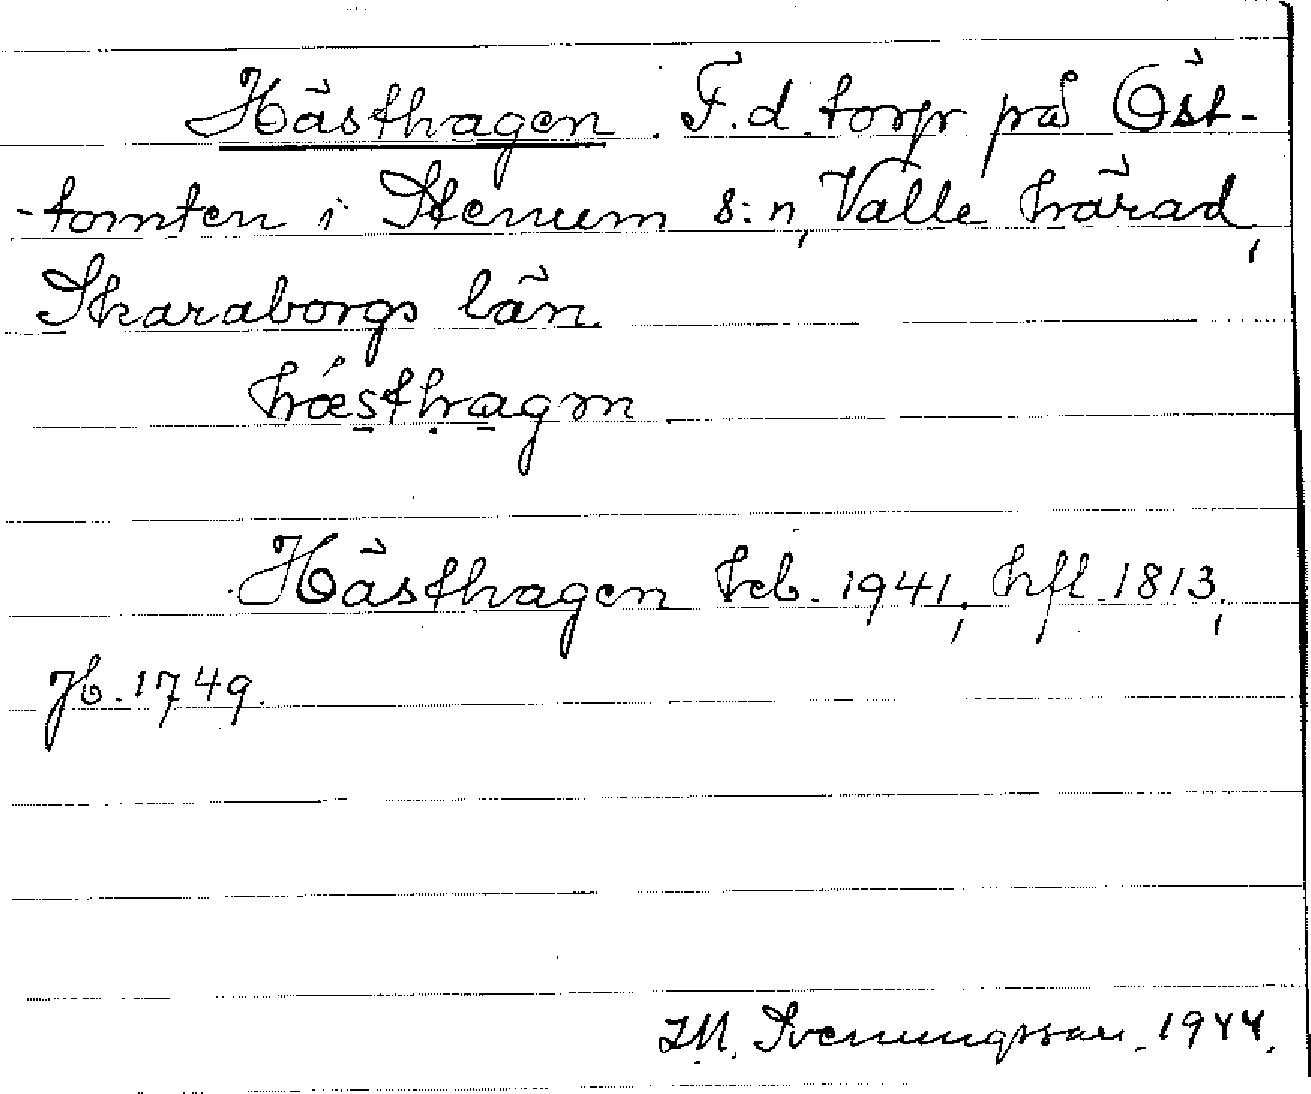 Hästhagen. F.d. torp på Öst-
-tomten i Stenum s:n, Valle härad,
Skaraborgs län.
hǽsthagɱ
Hästhagen hcb. 1941, hfl 1813,
Jb. 1749.
I.M. Svenungsson. 1944.